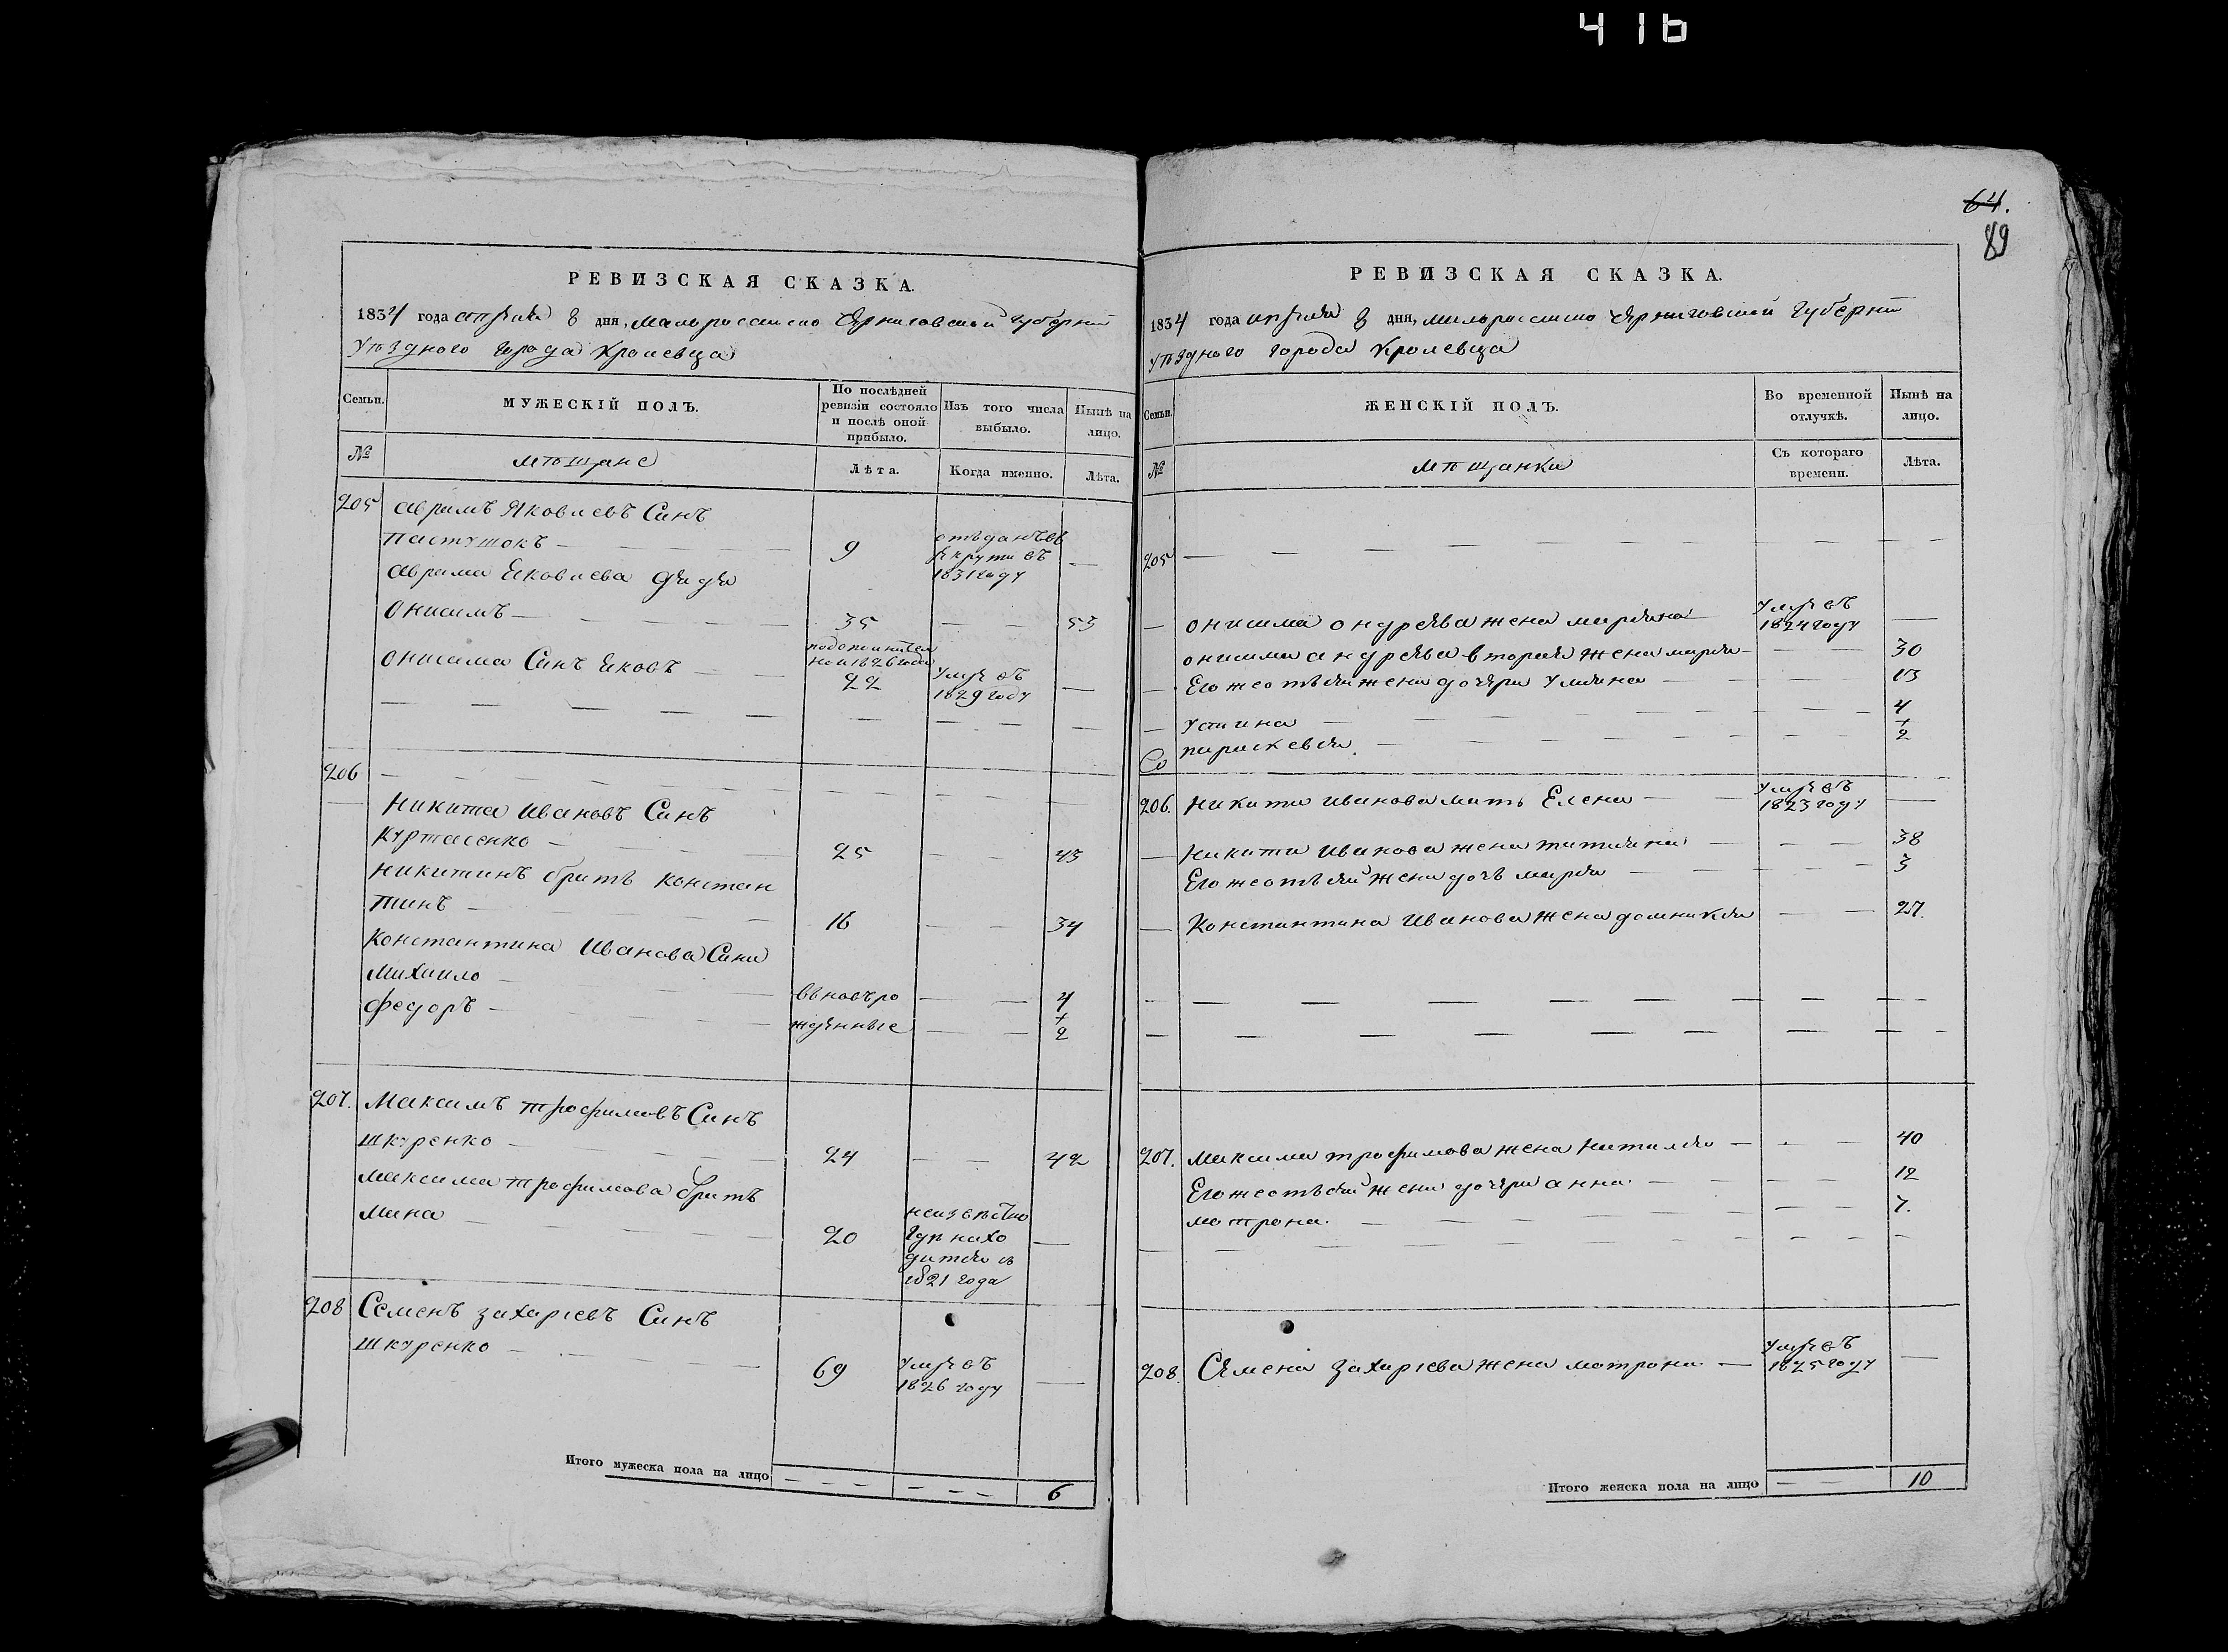 416
64.
89
РЕВИЗСКАЯ СКАЗКА.
1834 года апреля 8 дня, Малоросийско Черниговской Губерни
уѣздного города Кролевца
Семьи.
МУЖЕСКІЙ ПОЛЪ.
По послѣдней ревизіи состояло и послѣ оной прибыло.
Изъ того числа выбыло.
Нынѣ на лицо.
№
мѣщане
Лѣта.
Когда именно.
Лѣта.
205 Аврамъ Яковлевъ Синъ
Пастушокъ — 9 отъданъ въ рекрути въ 1831 году —
Аврама Яковлева дядя
Онисимъ — 35 — — 53
Онисима Синъ Яковъ — 22 умре въ 1829 году —
206
Никита Ивановъ Синъ
Куртасенко — 25 — 43
Никитинъ братъ Констан
тинъ — 16 — — 34
Константина Иванова Сини
Михайло — вьновъро — — 4
Федоръ — жденные — — 2
207. Максимъ Трофимовъ Синъ
Шкуренко — 24 — — 42
Максима Трофимова братъ
Мина — 20 неизвѣстно гдѣ находится съ 1821 года —
208 Семенъ Захаріевъ Синъ
Шкуренко — 69 умре въ 1826 году —
Итого мужеска пола на лицо — — — 6
РЕВИЗСКАЯ СКАЗКА.
1834 года апреля 8 дня, Малоросийско Черниговской Губерни
уѣздного города Кролевца
Семьи.
ЖЕНСКІЙ ПОЛЪ.
Во временной отлучкѣ.
Нынѣ на лицо.
№
мѣщанки
Съ котораго времени.
Лѣта.
205 —
— Онисима Ондреева жена Маряна умре въ 1824 году —
Онисима Андреева вторая жена Марья — — 30
— Его же отъ сей жени дочери Уляна — 13
— Устина — 4
Параскевия — 2
206. Никити Иванова мать Елена — умре въ 1823 году —
— Никити Иванова жена Татияна — — 38
Его же отъ сей жени дочь Марья — 3
— Константина Иванова жена Домникия — 27.
207. Максима Трофимова жена Наталья — — 40
Его же отъ сей жени дочери Анна — 12
Мотрона — 7.
208. Семена Захаріева жена Мотрона — умре въ 1825 году —
Итого женска пола на лицо — — 10